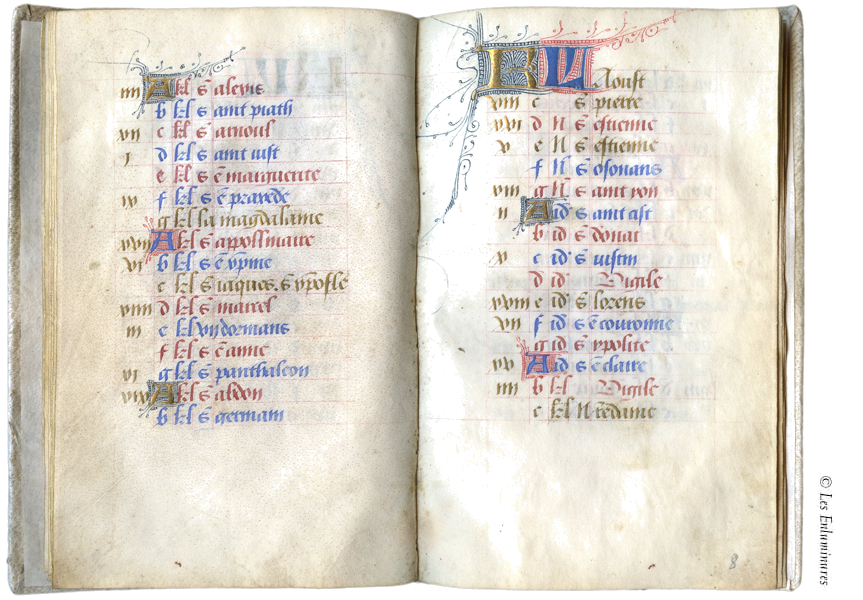 iiii A kl s alexis
b kl s amt piath
xvii c kl s arnoul
j d kl s amt iust
e kl s marguerite
ix f kl s praxede
g kl la magdalaine
xvii A kl s appollinaire
vi b kl s xpine
c kl s iaques. s xpofle
xiiii d kl s marcel
iii e kl vii dormans
f kl s anne
xi g kl s panthaleon
xix A kl s abdon
b kl s germain
KL Aoust
viii c s pierre
xvi d N s estienne
v e N s estienne
f N s osouans
xiii g N s amt yon
ii A id s amt sist
b id s donat
x c id s iustin
d id Vigile
xviii e id s lorens
vii f id s couronne
g id s ypolite
xv A id s claire
iiii b kl Vigile
c kl N redame
8
© Les Enluminures